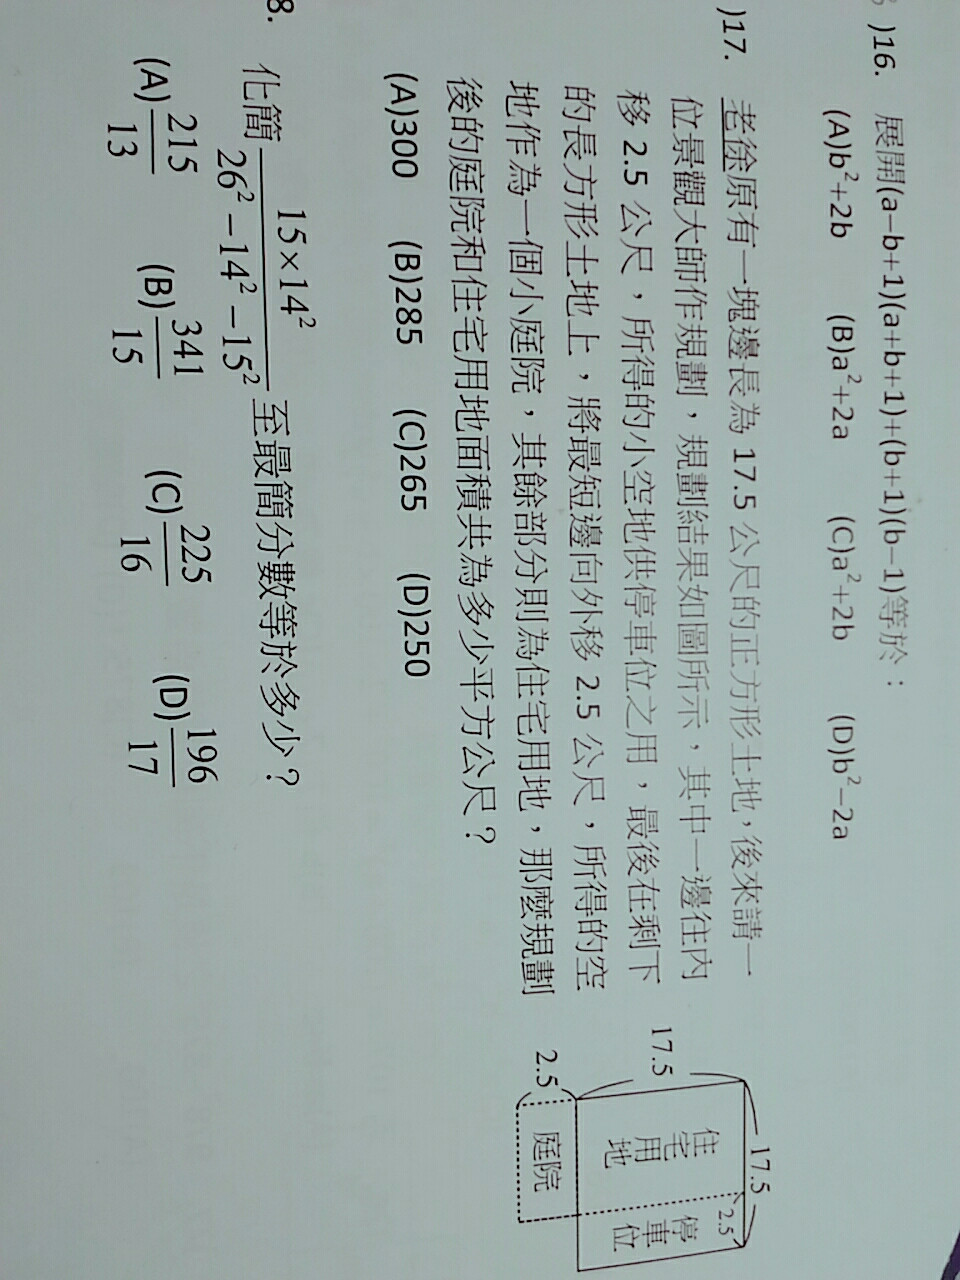 )16. 展開(a−b+1)(a+b+1)+(b+1)(b−1)等於：
(A)b²+2b (B)a²+2a (C)a²+2b (D)b²−2a
)17. 老徐原有一塊邊長為 17.5 公尺的正方形土地，後來請一
位景觀大師作規劃，規劃結果如圖所示，其中一邊往內
移 2.5 公尺，所得的小空地供停車位之用，最後在剩下
的長方形土地上，將最短邊向外移 2.5 公尺，所得的空
地作為一個小庭院，其餘部分則為住宅用地，那麼規劃
後的庭院和住宅用地面積共為多少平方公尺？
(A)300 (B)285 (C)265 (D)250
17.5
2.5
17.5
住宅用地
停車位
2.5
庭院
8. 化簡 \frac{15×14²}{26²−14²−15²} 至最簡分數等於多少？
(A) \frac{215}{13} (B) \frac{341}{15} (C) \frac{225}{16} (D) \frac{196}{17}